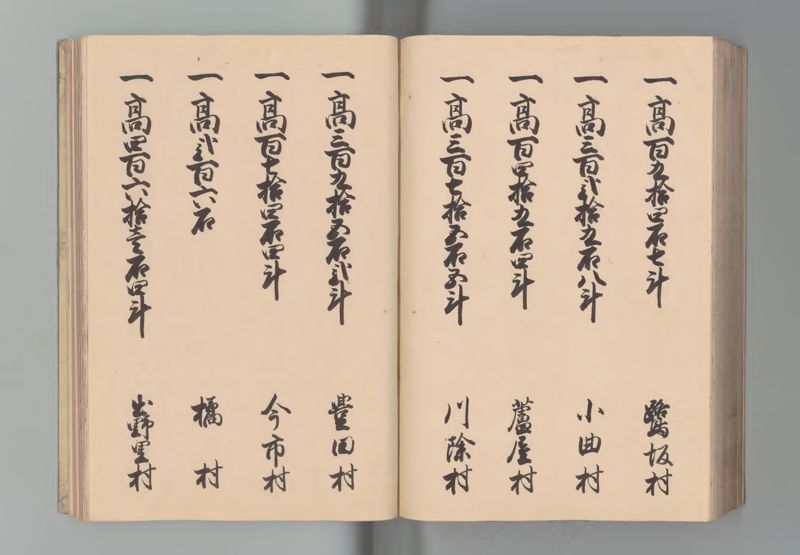 一高百九拾四石七斗 鷺坂村
一高三百弐拾九石八斗 小曲村
一高百四拾九石四斗 蘆屋村
一高三百七拾五石五斗 川除村
一高三百九拾五石弐斗 豊田村
一高百七拾四石四斗 今市村
一高弐百六石 橘村
一高四百六拾壱石四斗 出野里村